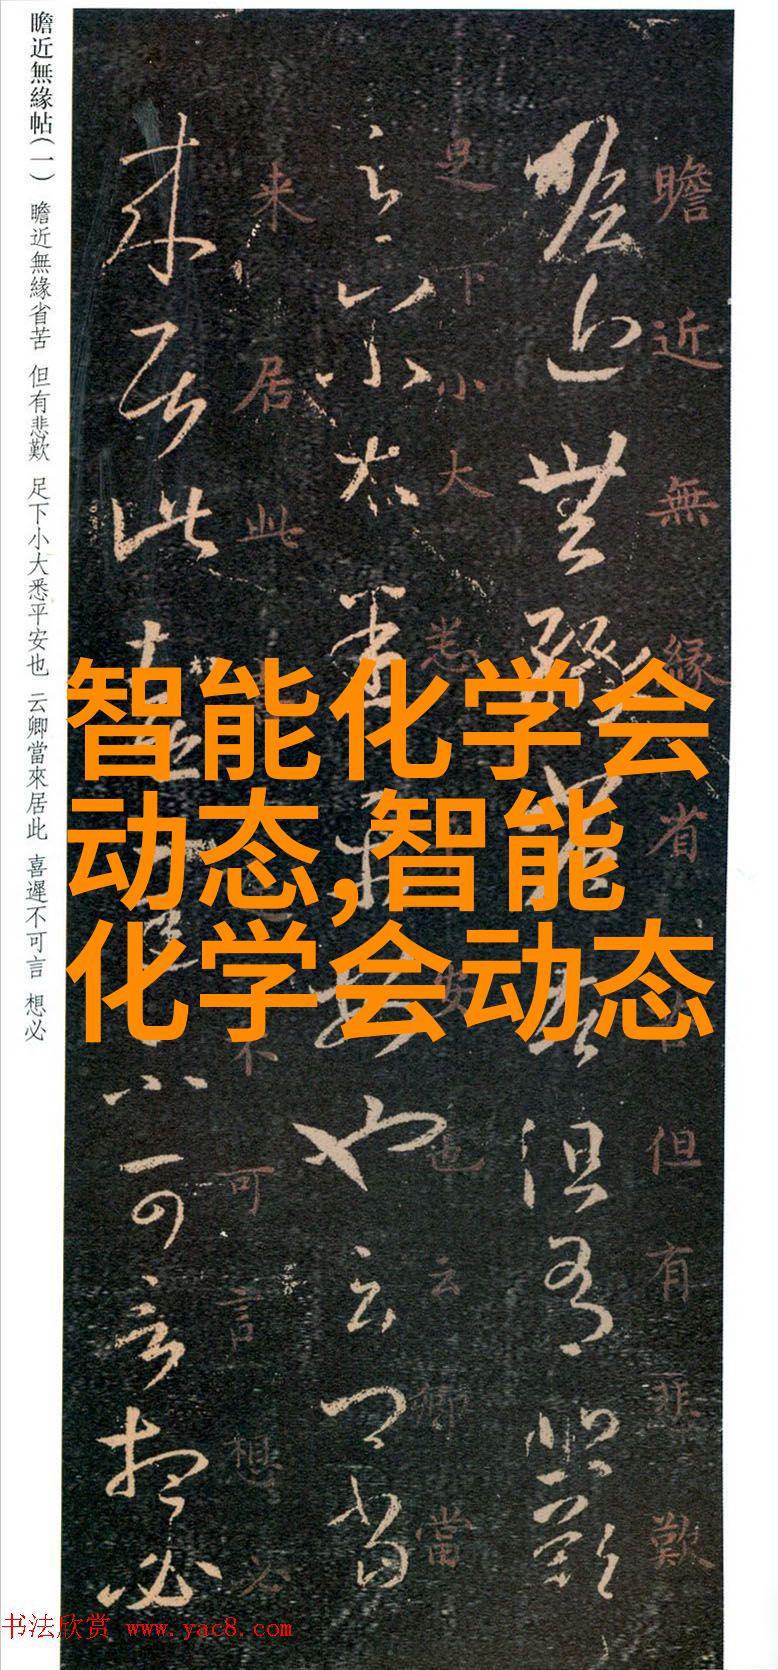 瞻近無緣帖(一) 瞻近無緣省苦 但有悲歎 足下小大悉平安也 云卿當來居此 喜遲不可言 想必
瞻近無緣省苦但有悲歎
足下小大悉平安也云卿當
来居此喜遲不可言想必
智能化学会
动态,智能
化学会动态
书法欣赏 www.yac8.com